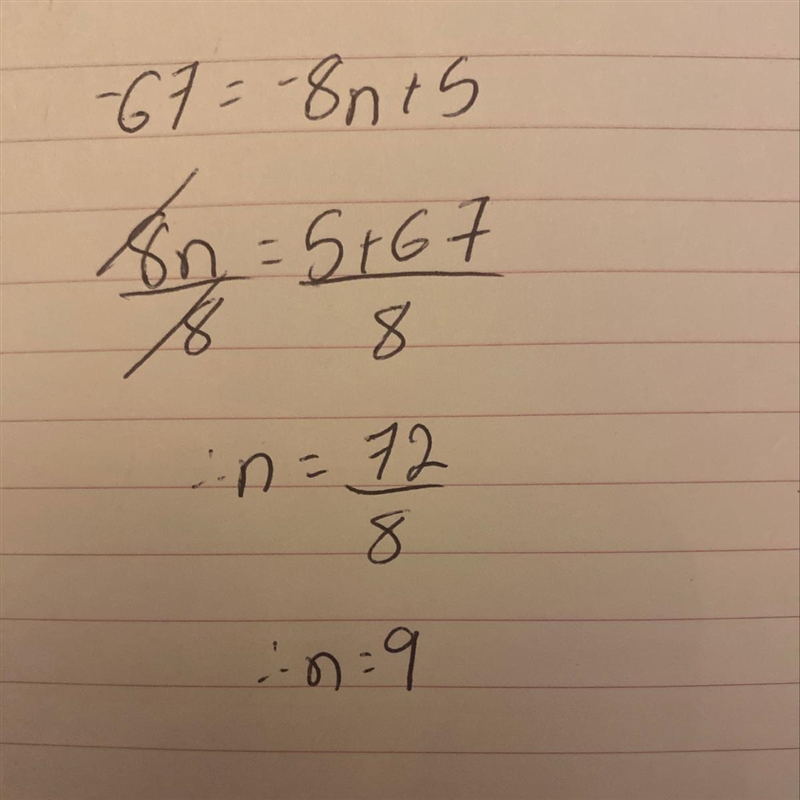 -67 = -8n+5
8n/8 = 5+67/8
∴n = 72/8
∴n=9